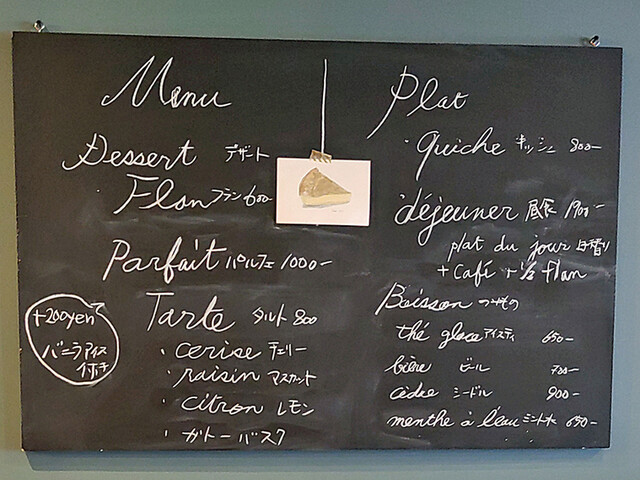 Menu
Dessert デザート
・Flan フラン 600-
Parfait パルフェ 1000-
Tarte タルト 800
・cerise チェリー
・raisin マスカット
・citron レモン
・ガトーバスク
+200yen
バニラアイス
付き
Plat
・quiche キッシュ 800-
déjeuner 昼食 1900-
plat du jour 日替り
+ café + ½ flan
Boisson のみもの
thé glace アイスティ 650-
bière ビール 700-
cidre シードル 900-
menthe à l'eau ミント水 650-